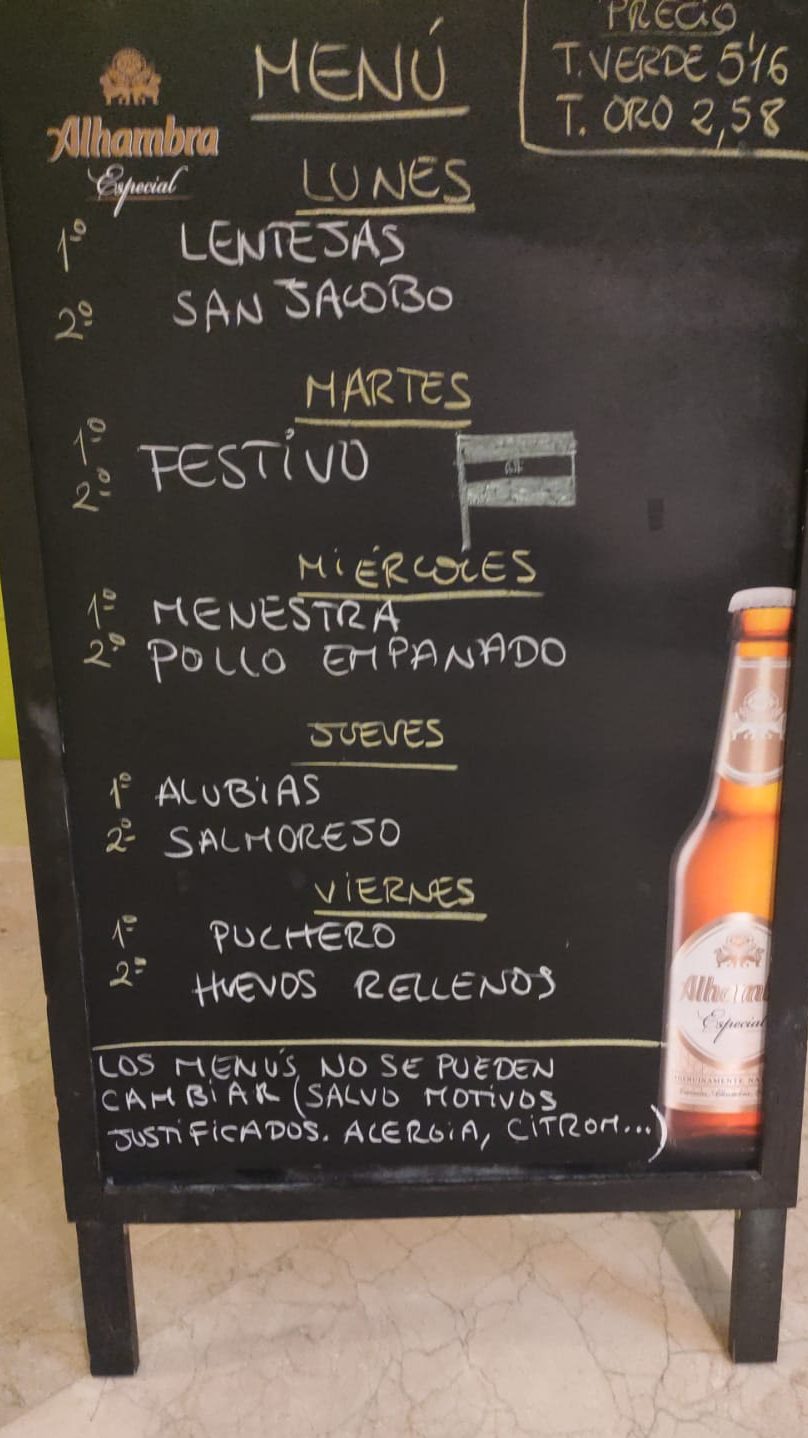 PRECIO
T. VERDE 5'16
T. ORO 2,58
MENÚ
Alhambra
Especial
LUNES
1º LENTEJAS
2º SAN JACOBO
MARTES
1º
2º FESTIVO
MIÉRCOLES
1º MENESTRA
2º POLLO EMPANADO
JUEVES
1º ALUBIAS
2º SALMOREJO
VIERNES
1º PUCHERO
2º HUEVOS RELLENOS
LOS MENÚS NO SE PUEDEN
CAMBIAR (SALVO MOTIVOS
JUSTIFICADOS. ALERGIA, CITROM...)
Alham
Especial